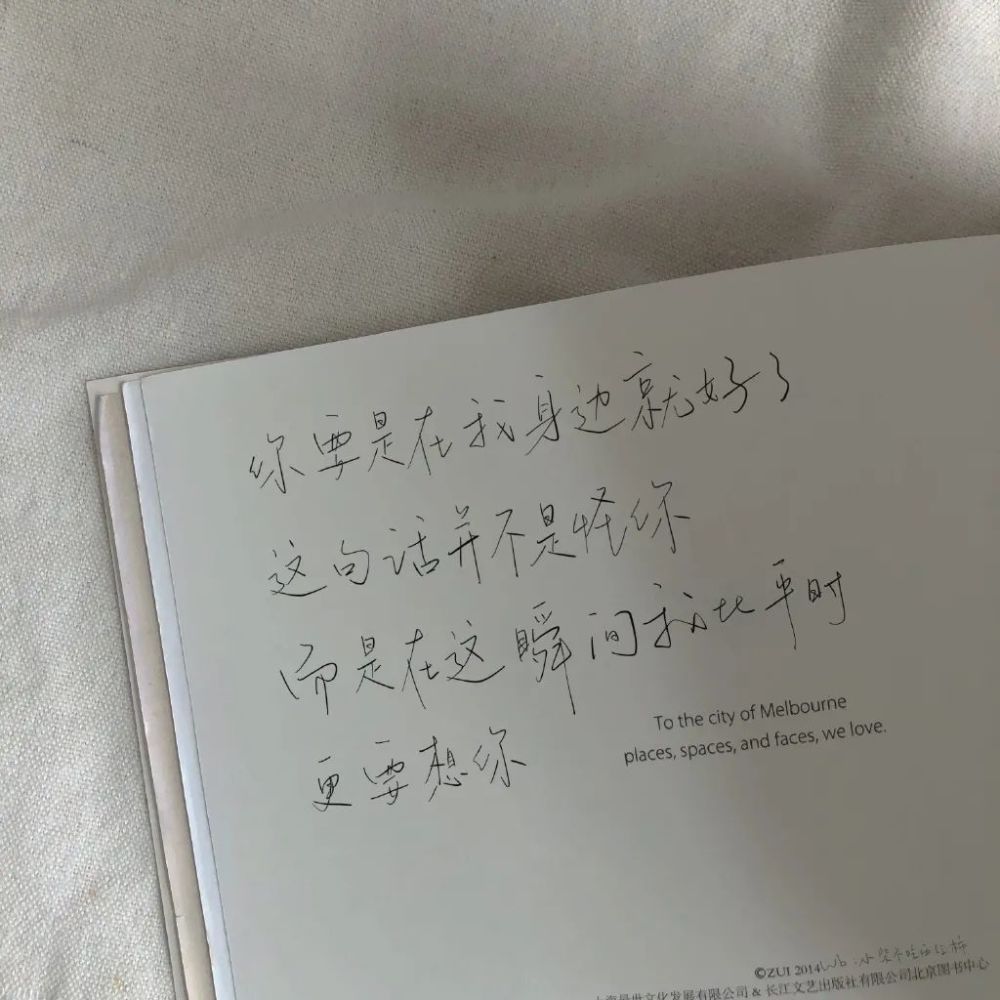 你要是在我身边就好了
这句话并不是怪你
而是在这瞬间我比平时
更要想你
To the city of Melbourne
places, spaces, and faces, we love.
©ZUI 2014
上海最世文化发展有限公司 & 长江文艺出版社有限公司北京图书中心